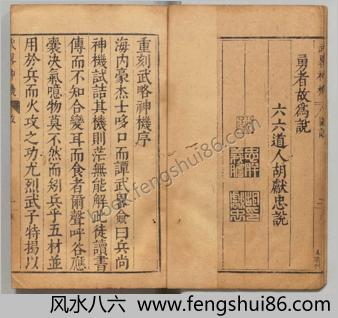 勇者故為說
六六道人胡獻忠說
重刻武略神機序
海内豪杰士哆口而譚武畧僉曰兵尚
神機試詰其機則茫無能解此徒讀書
傳而不知合變耳而食者爾聲呼谷應
囊決氣噫物莫不然而矧兵乎五材並
用於兵而火攻之功尤烈武子特揭以
武畧神機
风水八六 www.fengshui86.com